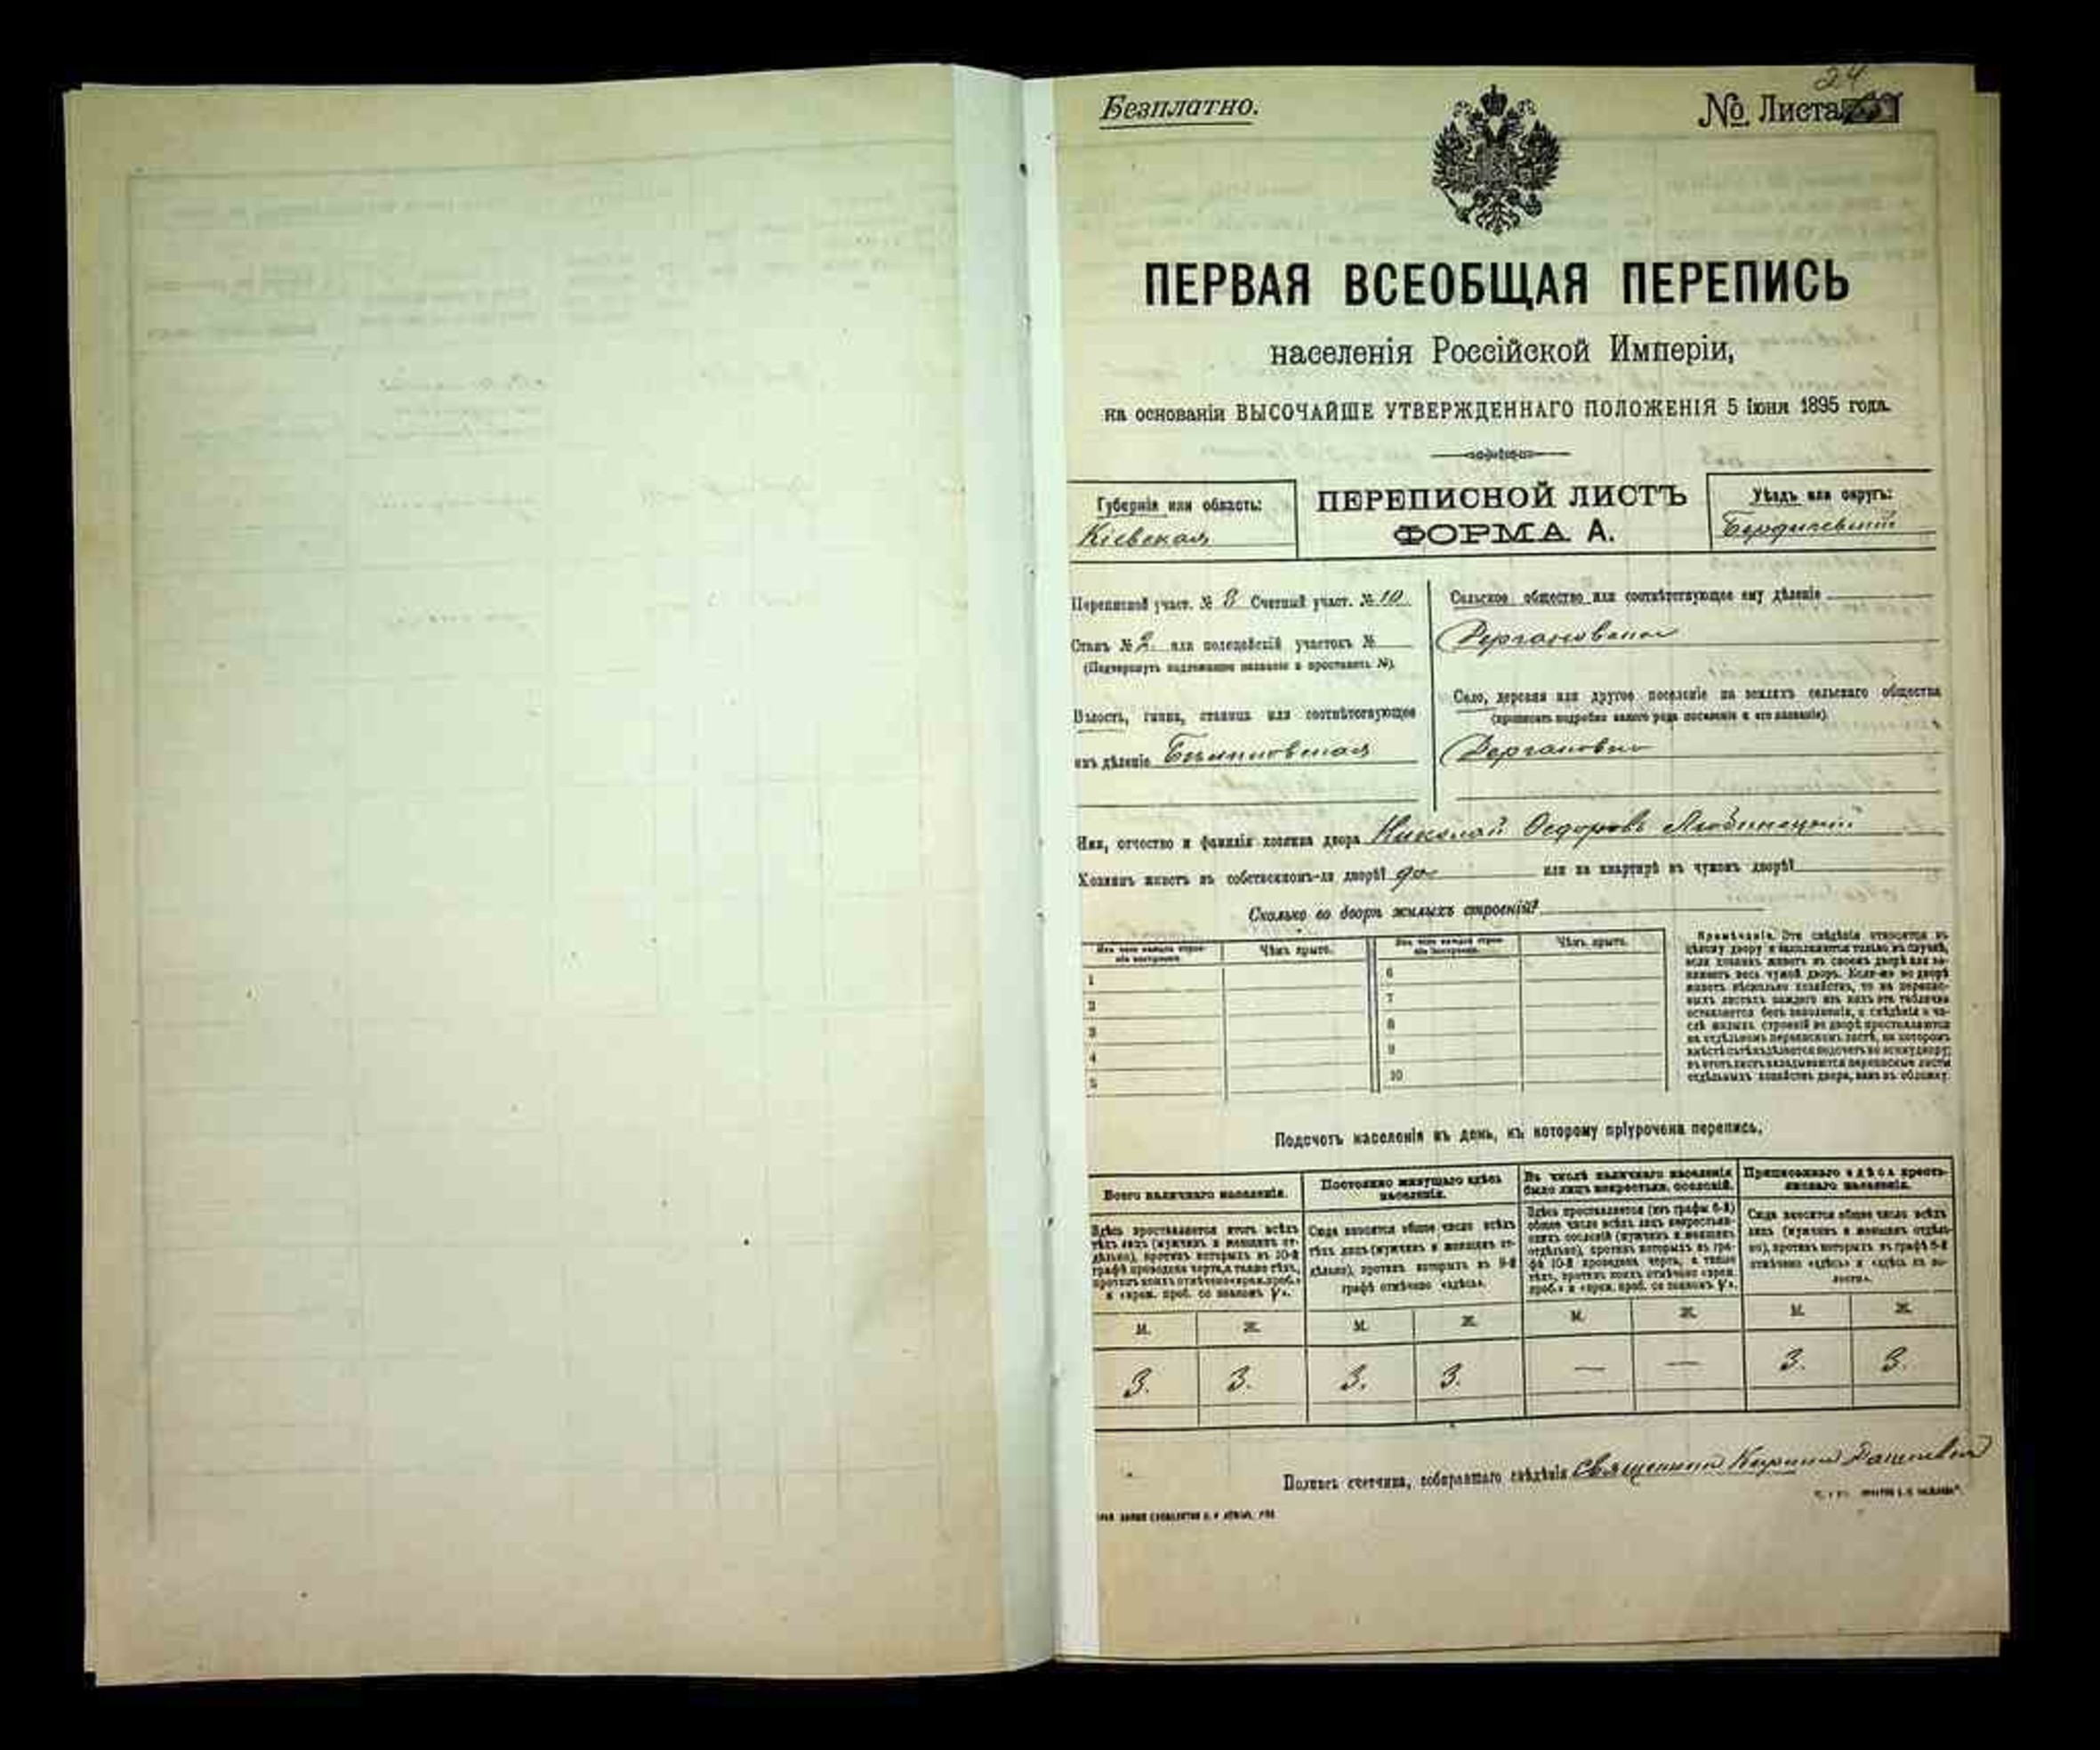 Безплатно.
24
№ Листа
ПЕРВАЯ ВСЕОБЩАЯ ПЕРЕПИСЬ
населенія Россійской Имперіи,
на основаніи ВЫСОЧАЙШЕ УТВЕРЖДЕННАГО ПОЛОЖЕНІЯ 5 Іюня 1895 года.
Губернія или область:
Кіевская
ПЕРЕПИСНОЙ ЛИСТЪ
ФОРМА А.
Уѣздъ или округъ:
Бердичевскій
Переписной участ. № 8 Счетный участ. № 10
Станъ № 2 или полицейскій участокъ №
(Подчеркнуть надлежащее названіе и проставить №).
Волость, гмина, станица или соотвѣтствующее
имъ дѣленіе
Сельское общество или соотвѣтствующее ему дѣленіе
Село, деревня или другое поселеніе на земляхъ сельскаго общества
(прописать подробно какого рода поселеніе и его названіе)
Имя, отчество и фамилія хозяина двора Николай Ѳедоровъ Любинецкій
Хозяинъ живетъ въ собственномъ-ли дворѣ? да или на квартирѣ въ чужомъ дворѣ?
Сколько во дворѣ жилыхъ строеній?
Изъ чего каждое строеніе построено.
Чѣмъ крыто.
Изъ чего каждое строеніе построено.
Чѣмъ крыто.
1 6
2 7
3 8
4 9
5 10
Примѣчаніе. Эти свѣдѣнія относятся къ
цѣлому двору и заполняются только въ случаѣ,
если хозяинъ живетъ въ своемъ дворѣ или занимаетъ
весь чужой дворъ. Если-же во дворѣ
живетъ нѣсколько хозяйствъ, то на переписныхъ
листахъ каждаго изъ нихъ эта табличка
оставляется безъ заполненія, а свѣдѣнія о числѣ
жилыхъ строеній во дворѣ проставляются
на отдѣльномъ переписномъ листѣ, на которомъ
вмѣстѣ съ тѣмъ дѣлается подсчетъ по всему двору;
въ этотъ листъ вкладываются переписные листы
отдѣльныхъ хозяйствъ двора, какъ въ обложку.
Подсчетъ населенія въ день, къ которому пріурочена перепись.
Всего наличнаго населенія.
Постоянно живущаго здѣсь населенія.
Въ числѣ наличнаго населенія было лицъ некрестьян. сословій.
Приписаннаго здѣсь крестьянскаго населенія.
Здѣсь проставляется итогъ всѣхъ
тѣхъ лицъ (мужчинъ и женщинъ отдѣльно),
противъ которыхъ въ 10-й
графѣ проведена черта, а также тѣхъ,
противъ коихъ отмѣчено «врем. проб.»
Сюда вносится общее число всѣхъ
тѣхъ лицъ (мужчинъ и женщинъ отдѣльно),
противъ которыхъ въ 9-й
графѣ отмѣчено «здѣсь».
Здѣсь проставляется (изъ графы 6-й)
общее число всѣхъ лицъ некрестьянскихъ
сословій (мужчинъ и женщинъ
отдѣльно), противъ которыхъ въ графѣ
10-й проведена черта, а также
тѣхъ, противъ коихъ отмѣчено «врем.
Сюда вносится общее число всѣхъ
лицъ (мужчинъ и женщинъ отдѣльно),
противъ которыхъ въ графѣ 8-й
отмѣчено «здѣсь» и «здѣсь въ волости».
М. Ж. М. Ж. М. Ж. М. Ж.
3. 3. 3. 3. — — 3. 3.
Подпись счетчика, собиравшаго свѣдѣнія Священникъ